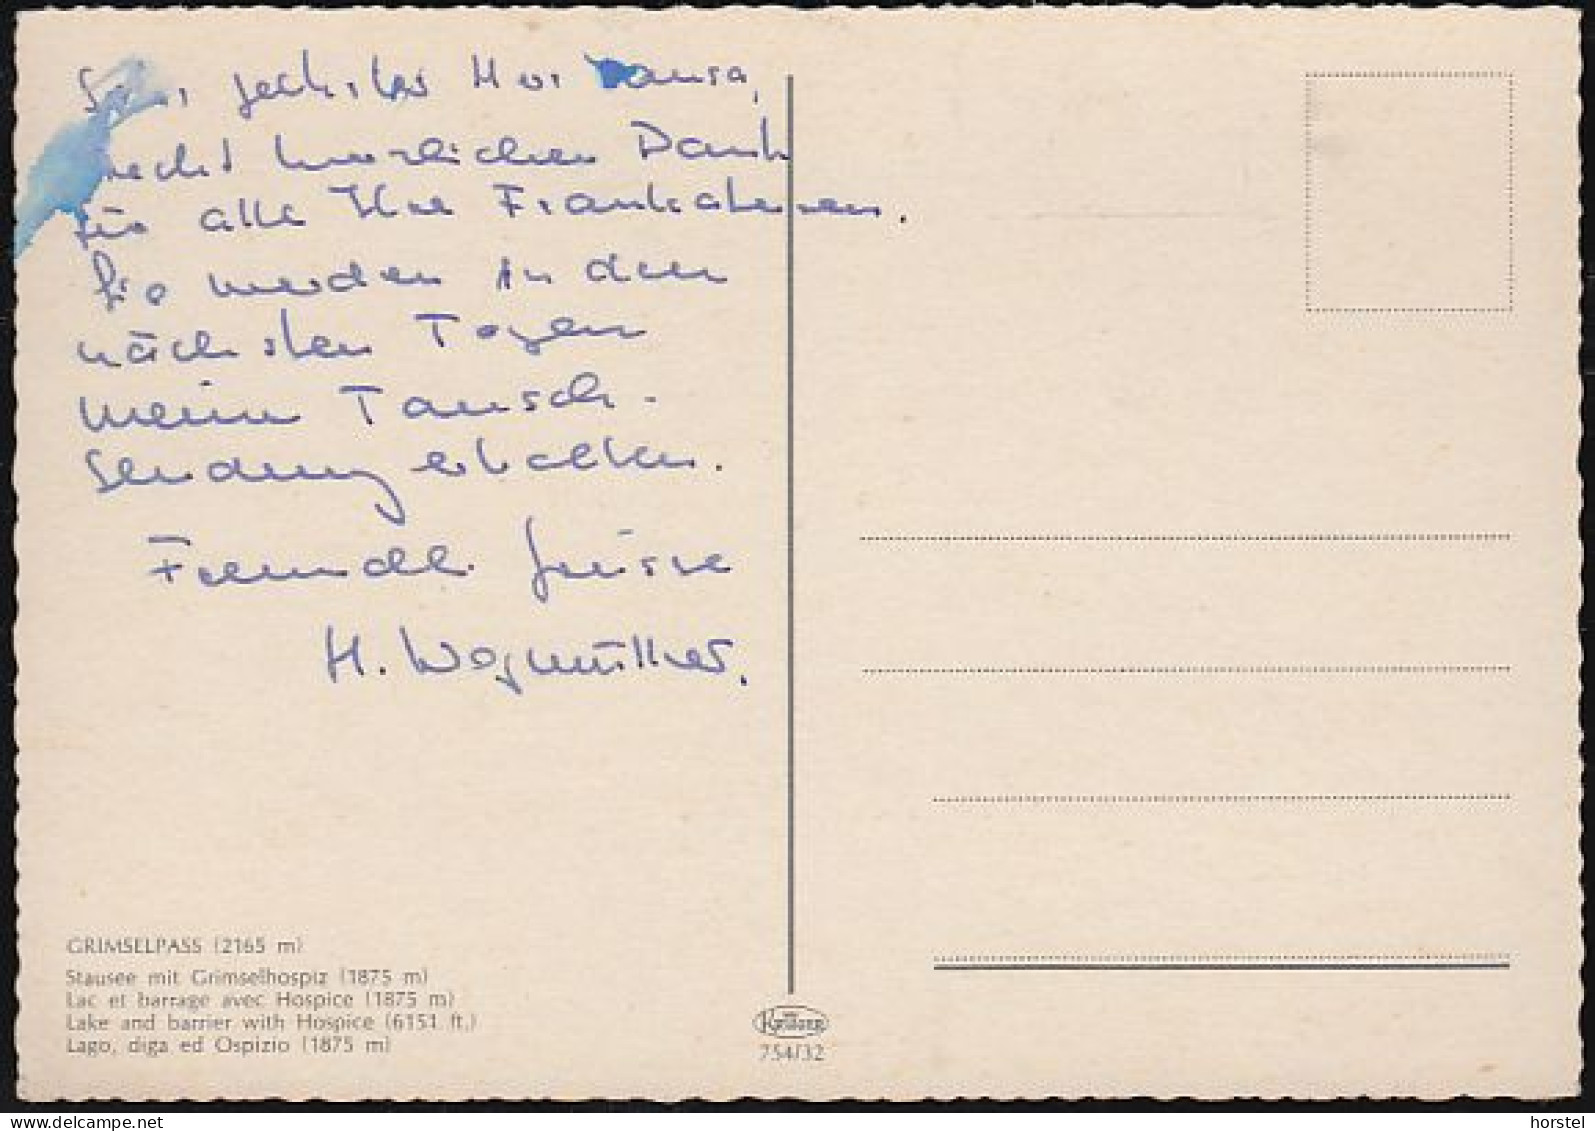 recht herzlichen Dank
für alle Ihre Frankaturen.
Sie werden in den
nächsten Tagen
meine Tausch-
sendung erhalten.
Freundl. Grüsse
H. Wagmüller.
GRIMSELPASS (2165 m)
Stausee mit Grimselhospiz (1875 m)
Lac et barrage avec Hospice (1875 m)
Lake and barrier with Hospice (6151 ft.)
Lago, diga ed Ospizio (1875 m)
Krüger
754/32
horstel | delcampe.net